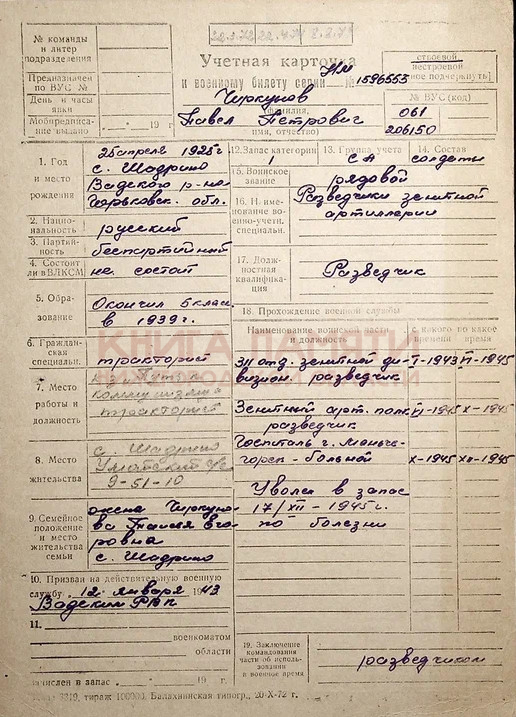 № команды
и литер
подразделения
Предназначен
по ВУС №
День и часы
явки
Мобпредписа-
ние выдано 19 г.
Учетная карточка
к военному билету серии НМ № 1596553
строевой
нестроевой
подчеркнуть)
Чиркунов
(фамилия,
Павел Петрович
имя, отчество)
№ ВУС (код)
061
206150
1. Год
и место
рождения
25 апреля 1925 г
с. Шадрино
Вадского р-на
Горьковск. обл.
2. Нацио-
нальность
русский
3. Партий-
ность
беспартийный
4. Состоит
ли в ВЛКСМ
не состоит
5. Обра-
зование
Окончил 5 класс.
в 1939 г.
6. Гражданская
специальн.
тракторист
7. Место
работы и
должность
коммунизму
тракторист
8. Место
жительства
с. Шадрино
9-51-10
9. Семейное
положение
и место
жительства
семьи
жена Чирку-
ва Таисья Его-
ровна
с. Шадрино
10. Призван на действительную военную
службу 12 января 1943
Вадским РВК
11.
военкоматом
области
зачислен в запас 19 г.
12. Запас категории
1
13. Группа учета
СА
14. Состав
солдаты
15. Воинское
звание
рядовой
16. Наиме-
нование во-
енно-учетн.
специальн.
Разведчики зенитной
артиллерии
17. Долж-
ностная
квалифика-
ция
Разведчик
18. Прохождение военной службы
Наименование воинской части
и должность
с какого
времени
по какое
время
311 отд. зенитной ди-
визион. разведчик
I-1943 VI-1945
Зенитный арт. полк
разведчик
VI-1945 X-1945
Госпиталь г. Монче-
горск - больной
X-1945 XII-1945
Уволен в запас
17/XII - 1945 г.
по болезни
19. Заключение
командования
части об исполь-
зовании
в военное время
разведчиком
тираж 100000, Балахнинская типогр., 20-X-72 г.
КНИГА ПАМЯТИ